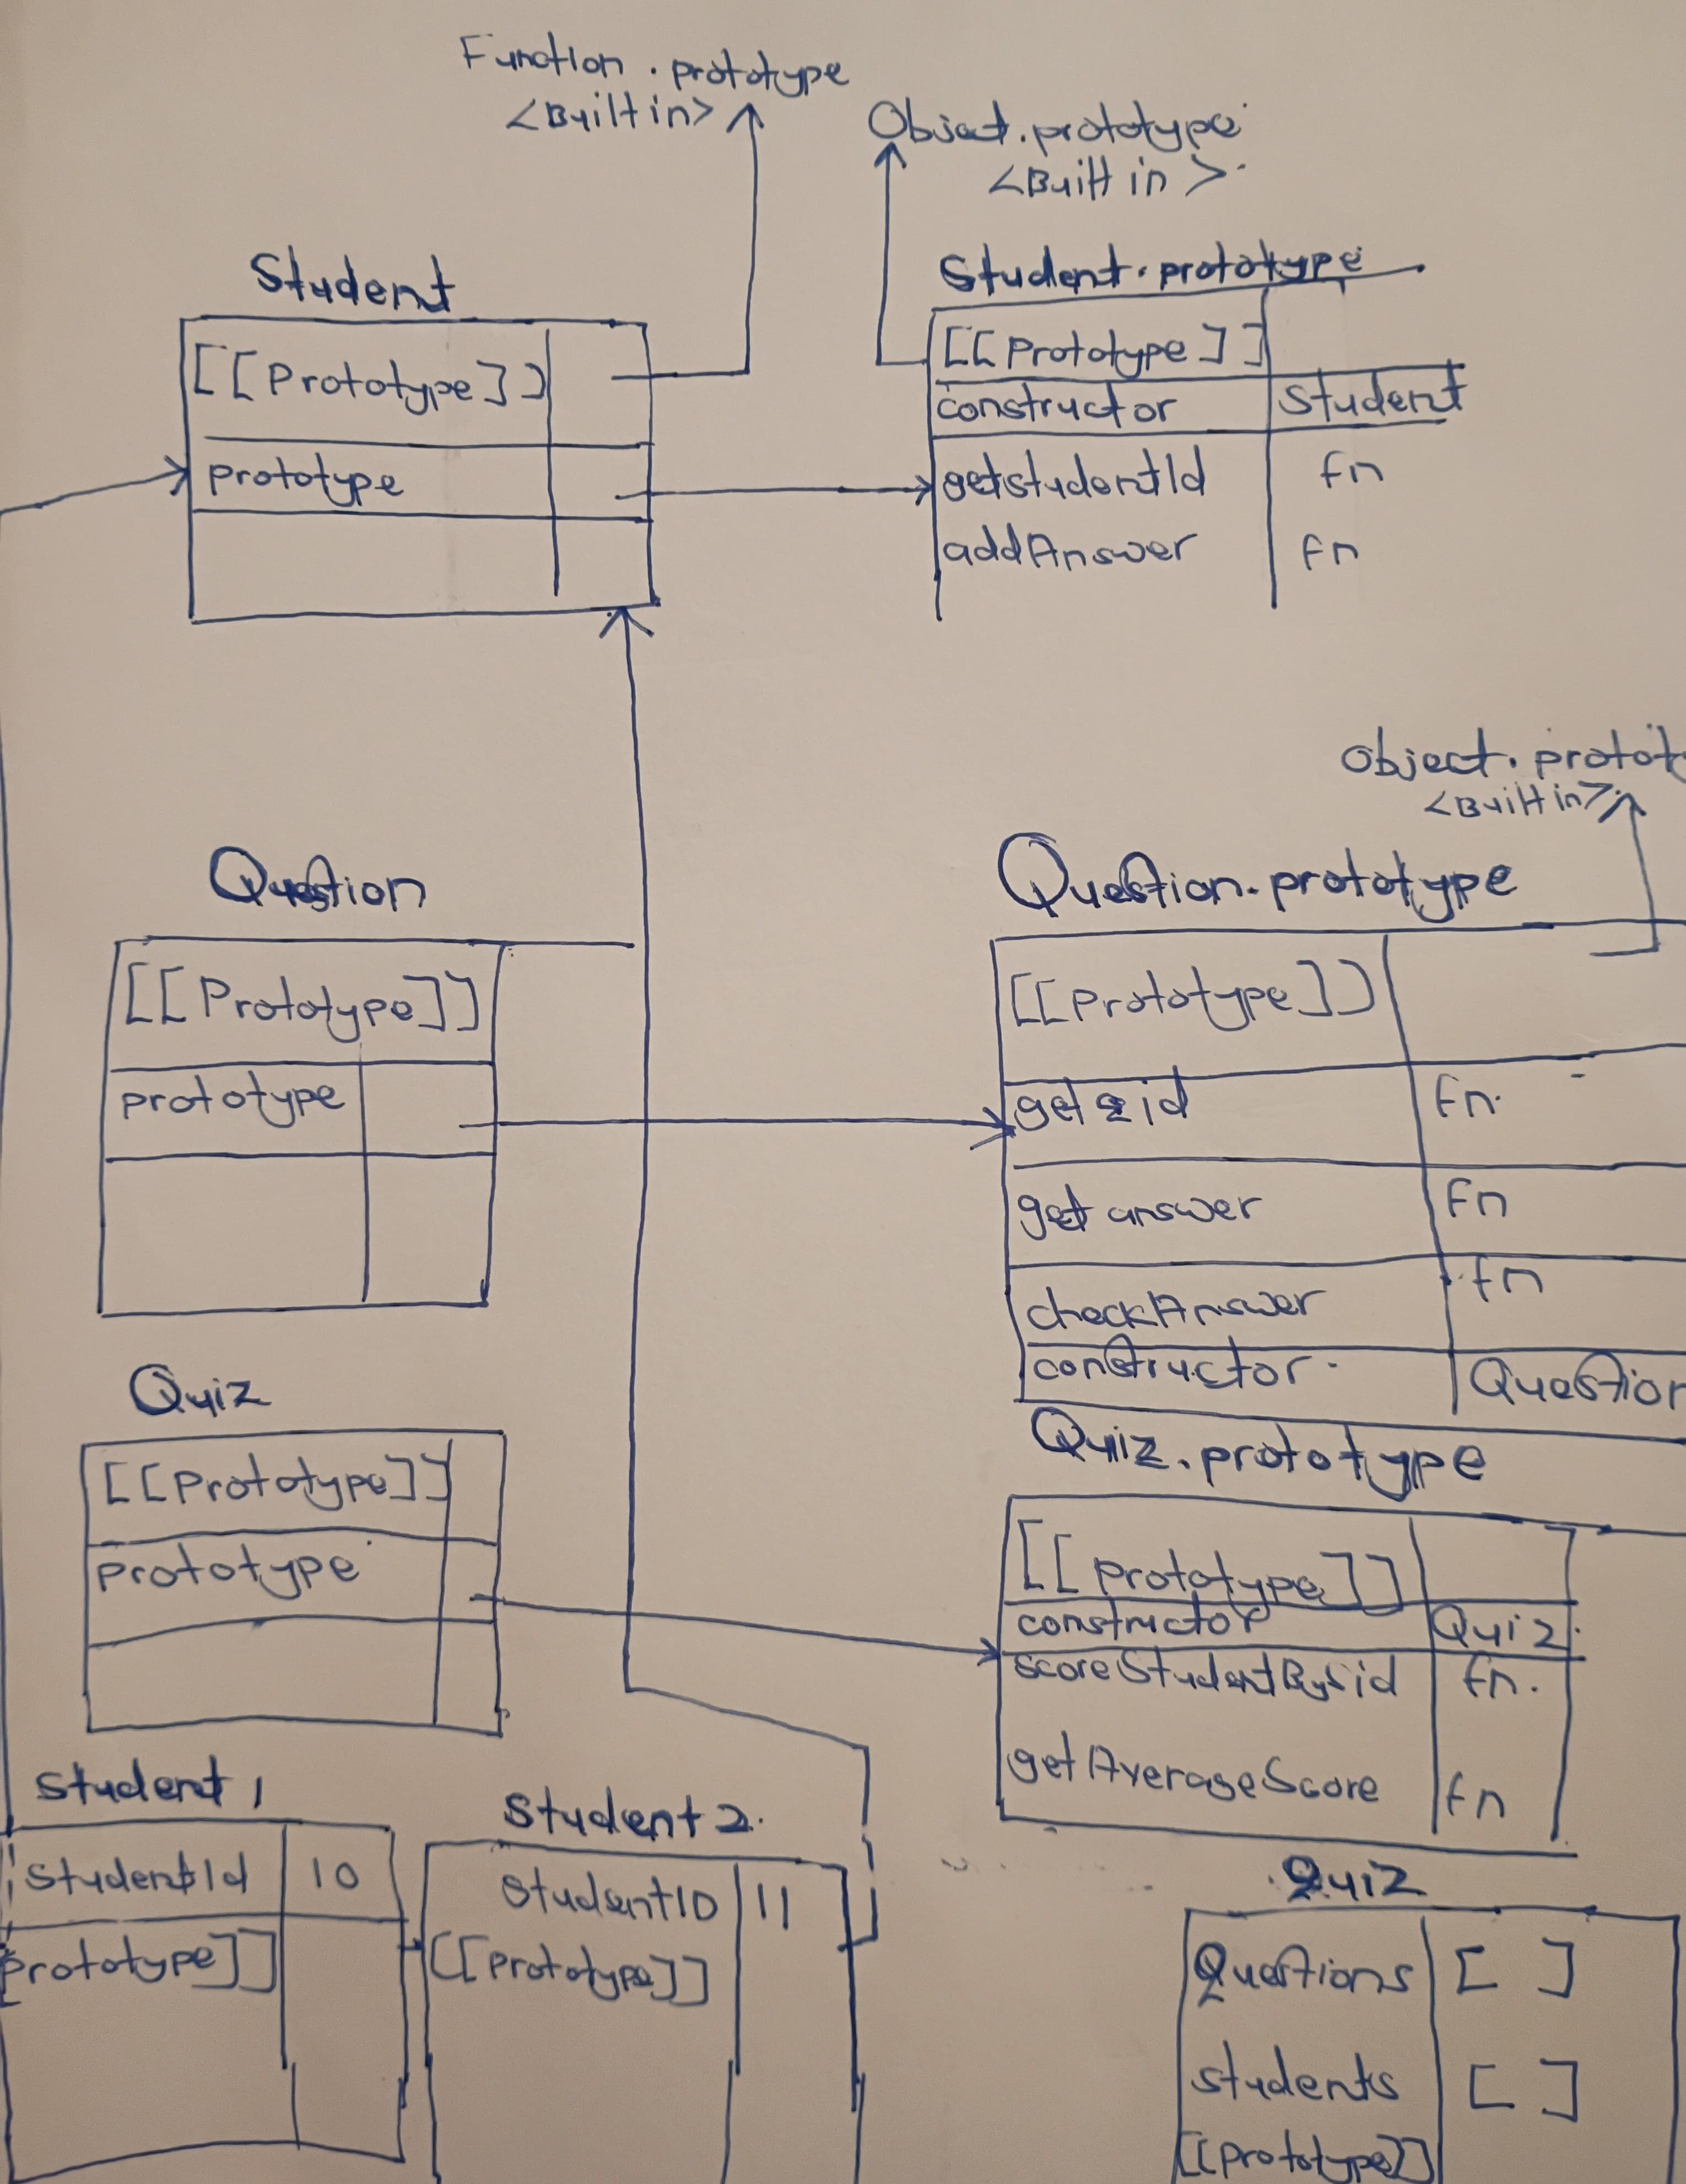 Function . prototype
<Built in>
Object.prototype
<Built in >
Student
[[Prototype]]
prototype
Student.prototype
[[prototype]]
constructor Student
getstudentId fn
addAnswer fn
Object. protot
<Built in>
Question
[[Prototype]]
prototype
Question.prototype
[[prototype]]
get qid fn.
get answer fn
checkAnswer fn
constructor Question
Quiz
[[prototype]]
prototype
Quiz.prototype
[[prototype]]
constructor Quiz
scoreStudentBysid fn.
getAverageScore fn
Student 1
StudentId 10
prototype]]
Student 2.
StudentID 11
[[prototype]]
Quiz
Questions [ ]
students [ ]
[[prototype]]